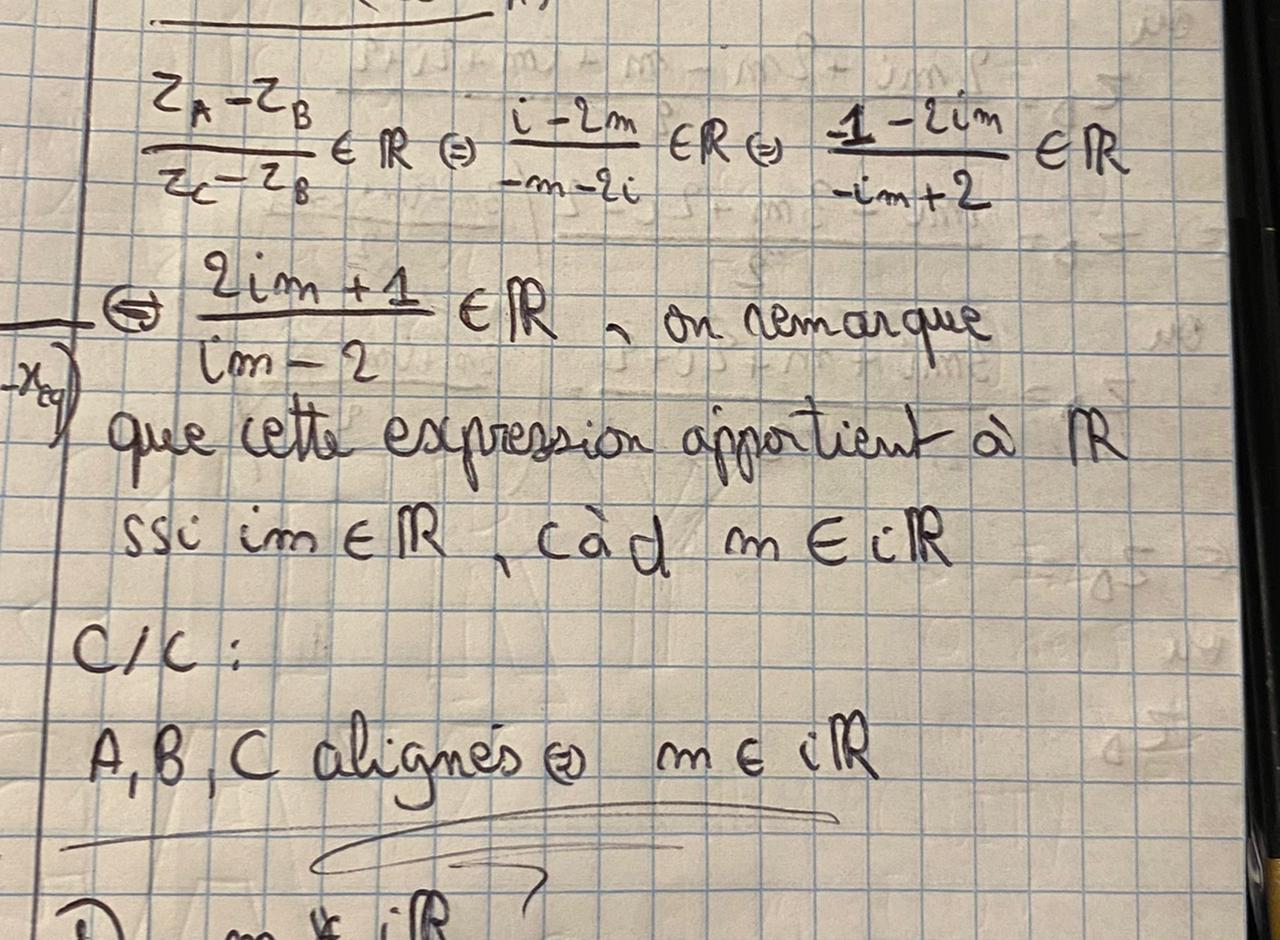 (z_A - z_B)/(z_C - z_B) ∈ ℝ ⇔ (i - 2m)/(-m - 2i) ∈ ℝ ⇔ (-1 - 2im)/(-im + 2) ∈ ℝ
⇔ (2im + 1)/(im - 2) ∈ ℝ, on remarque
-x_eq)
que cette expression appartient à ℝ
ssi im ∈ ℝ, càd m ∈ iℝ
C/C :
A, B, C alignés ⇔ m ∈ iℝ